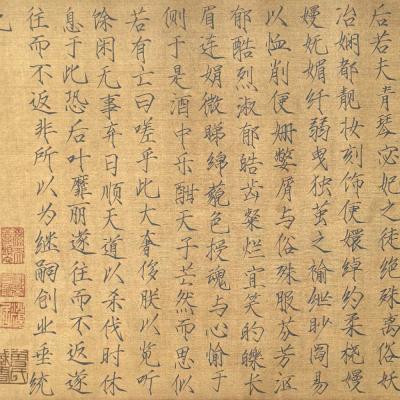 后若夫青琴宓妃之徒绝殊离俗妖
冶娴都靓妆刻饰便嬛绰约柔桡嫚
嫚妩媚纤弱曳独茧之褕绁眇阎易
以恤削便姗嫳屑与俗殊服芬芳沤
郁酷烈淑郁皓齿粲烂宜笑的皪长
眉连娟微睇绵藐色授魂与心愉于
侧于是酒中乐酣天子芒然而思似
若有亡曰嗟乎此大奢侈朕以览听
馀闲无事弃日顺天道以杀伐时休
息于此恐后叶靡丽遂往而不返遂
往而不返非所以为继嗣创业垂统